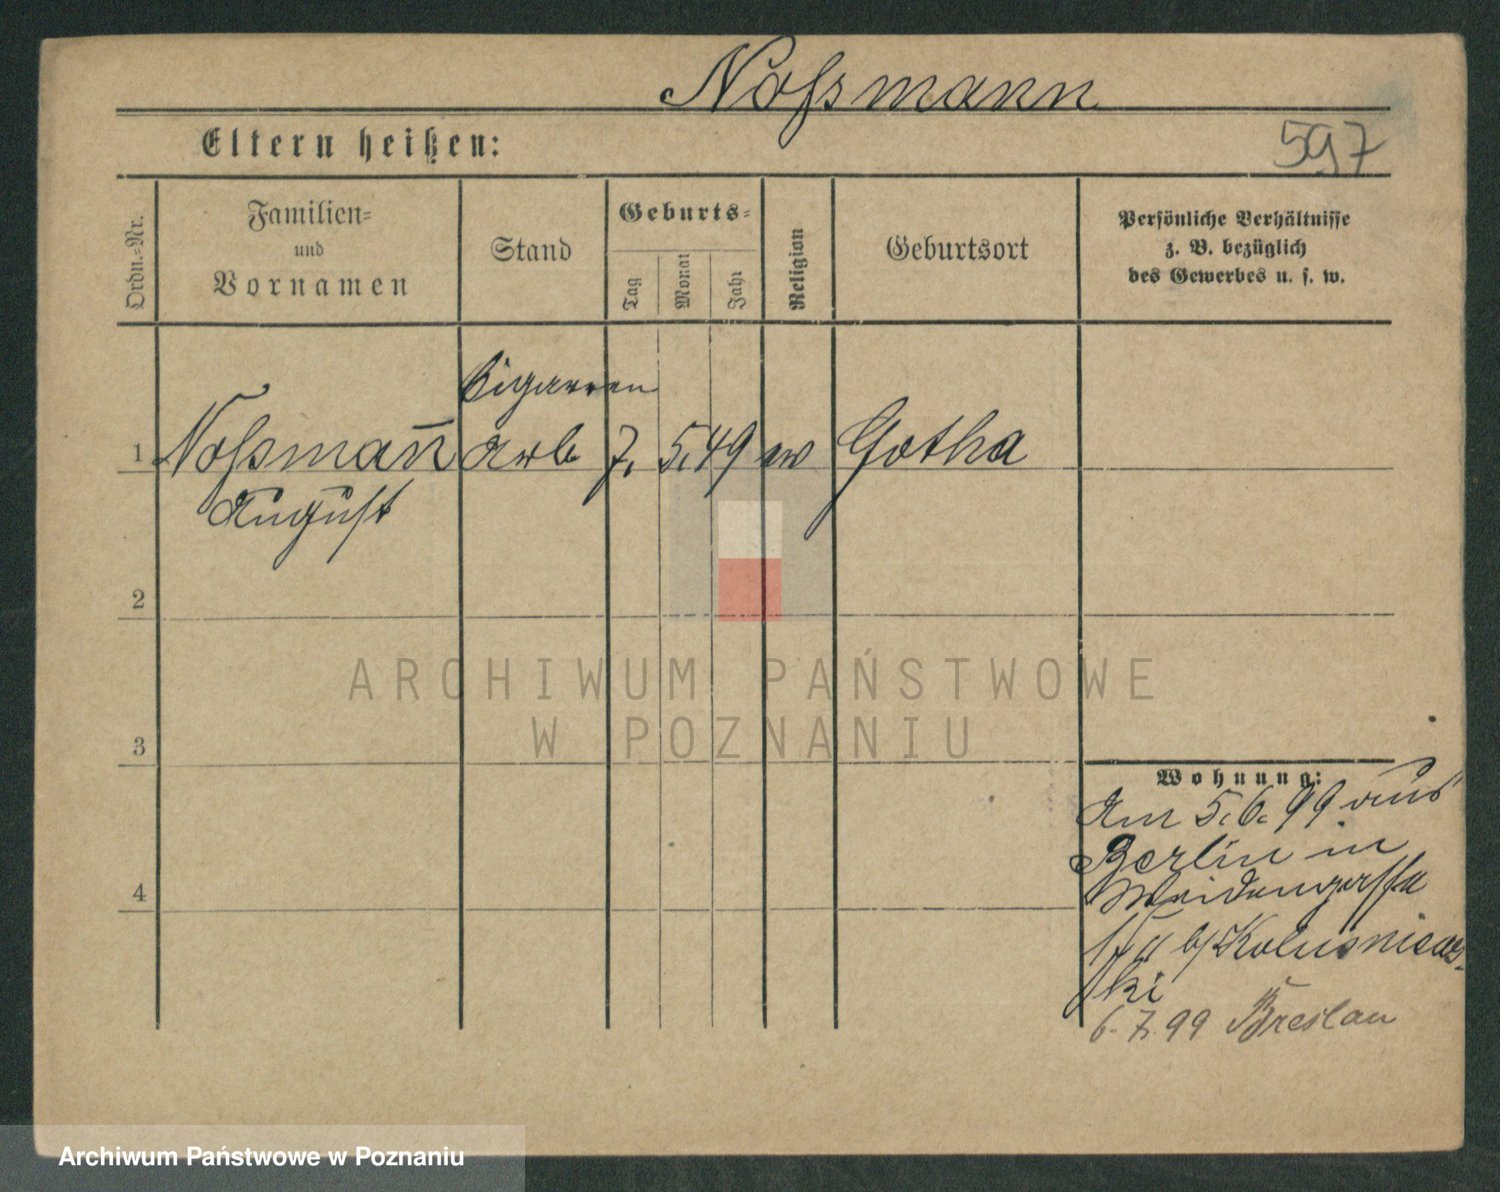 Noßmann
Eltern heißen:
597
Ordn.-Nr.
Familien-
und
Vornamen
Stand
Geburts-
Tag
Monat
Jahr
Religion
Geburtsort
Persönliche Verhältnisse
z. B. bezüglich
des Gewerbes u. s. w.
Cigarren
1 Noßmañ Arb 7. 5. 49 ev Gotha
August
2
ARCHIWUM PAŃSTWOWE
W POZNANIU
3
Wohnung:
Am 5. 6. 99 aus
Berlin in
Weidengasse
b/
ki
4
6. 7. 99 Breslau
Archiwum Państwowe w Poznaniu